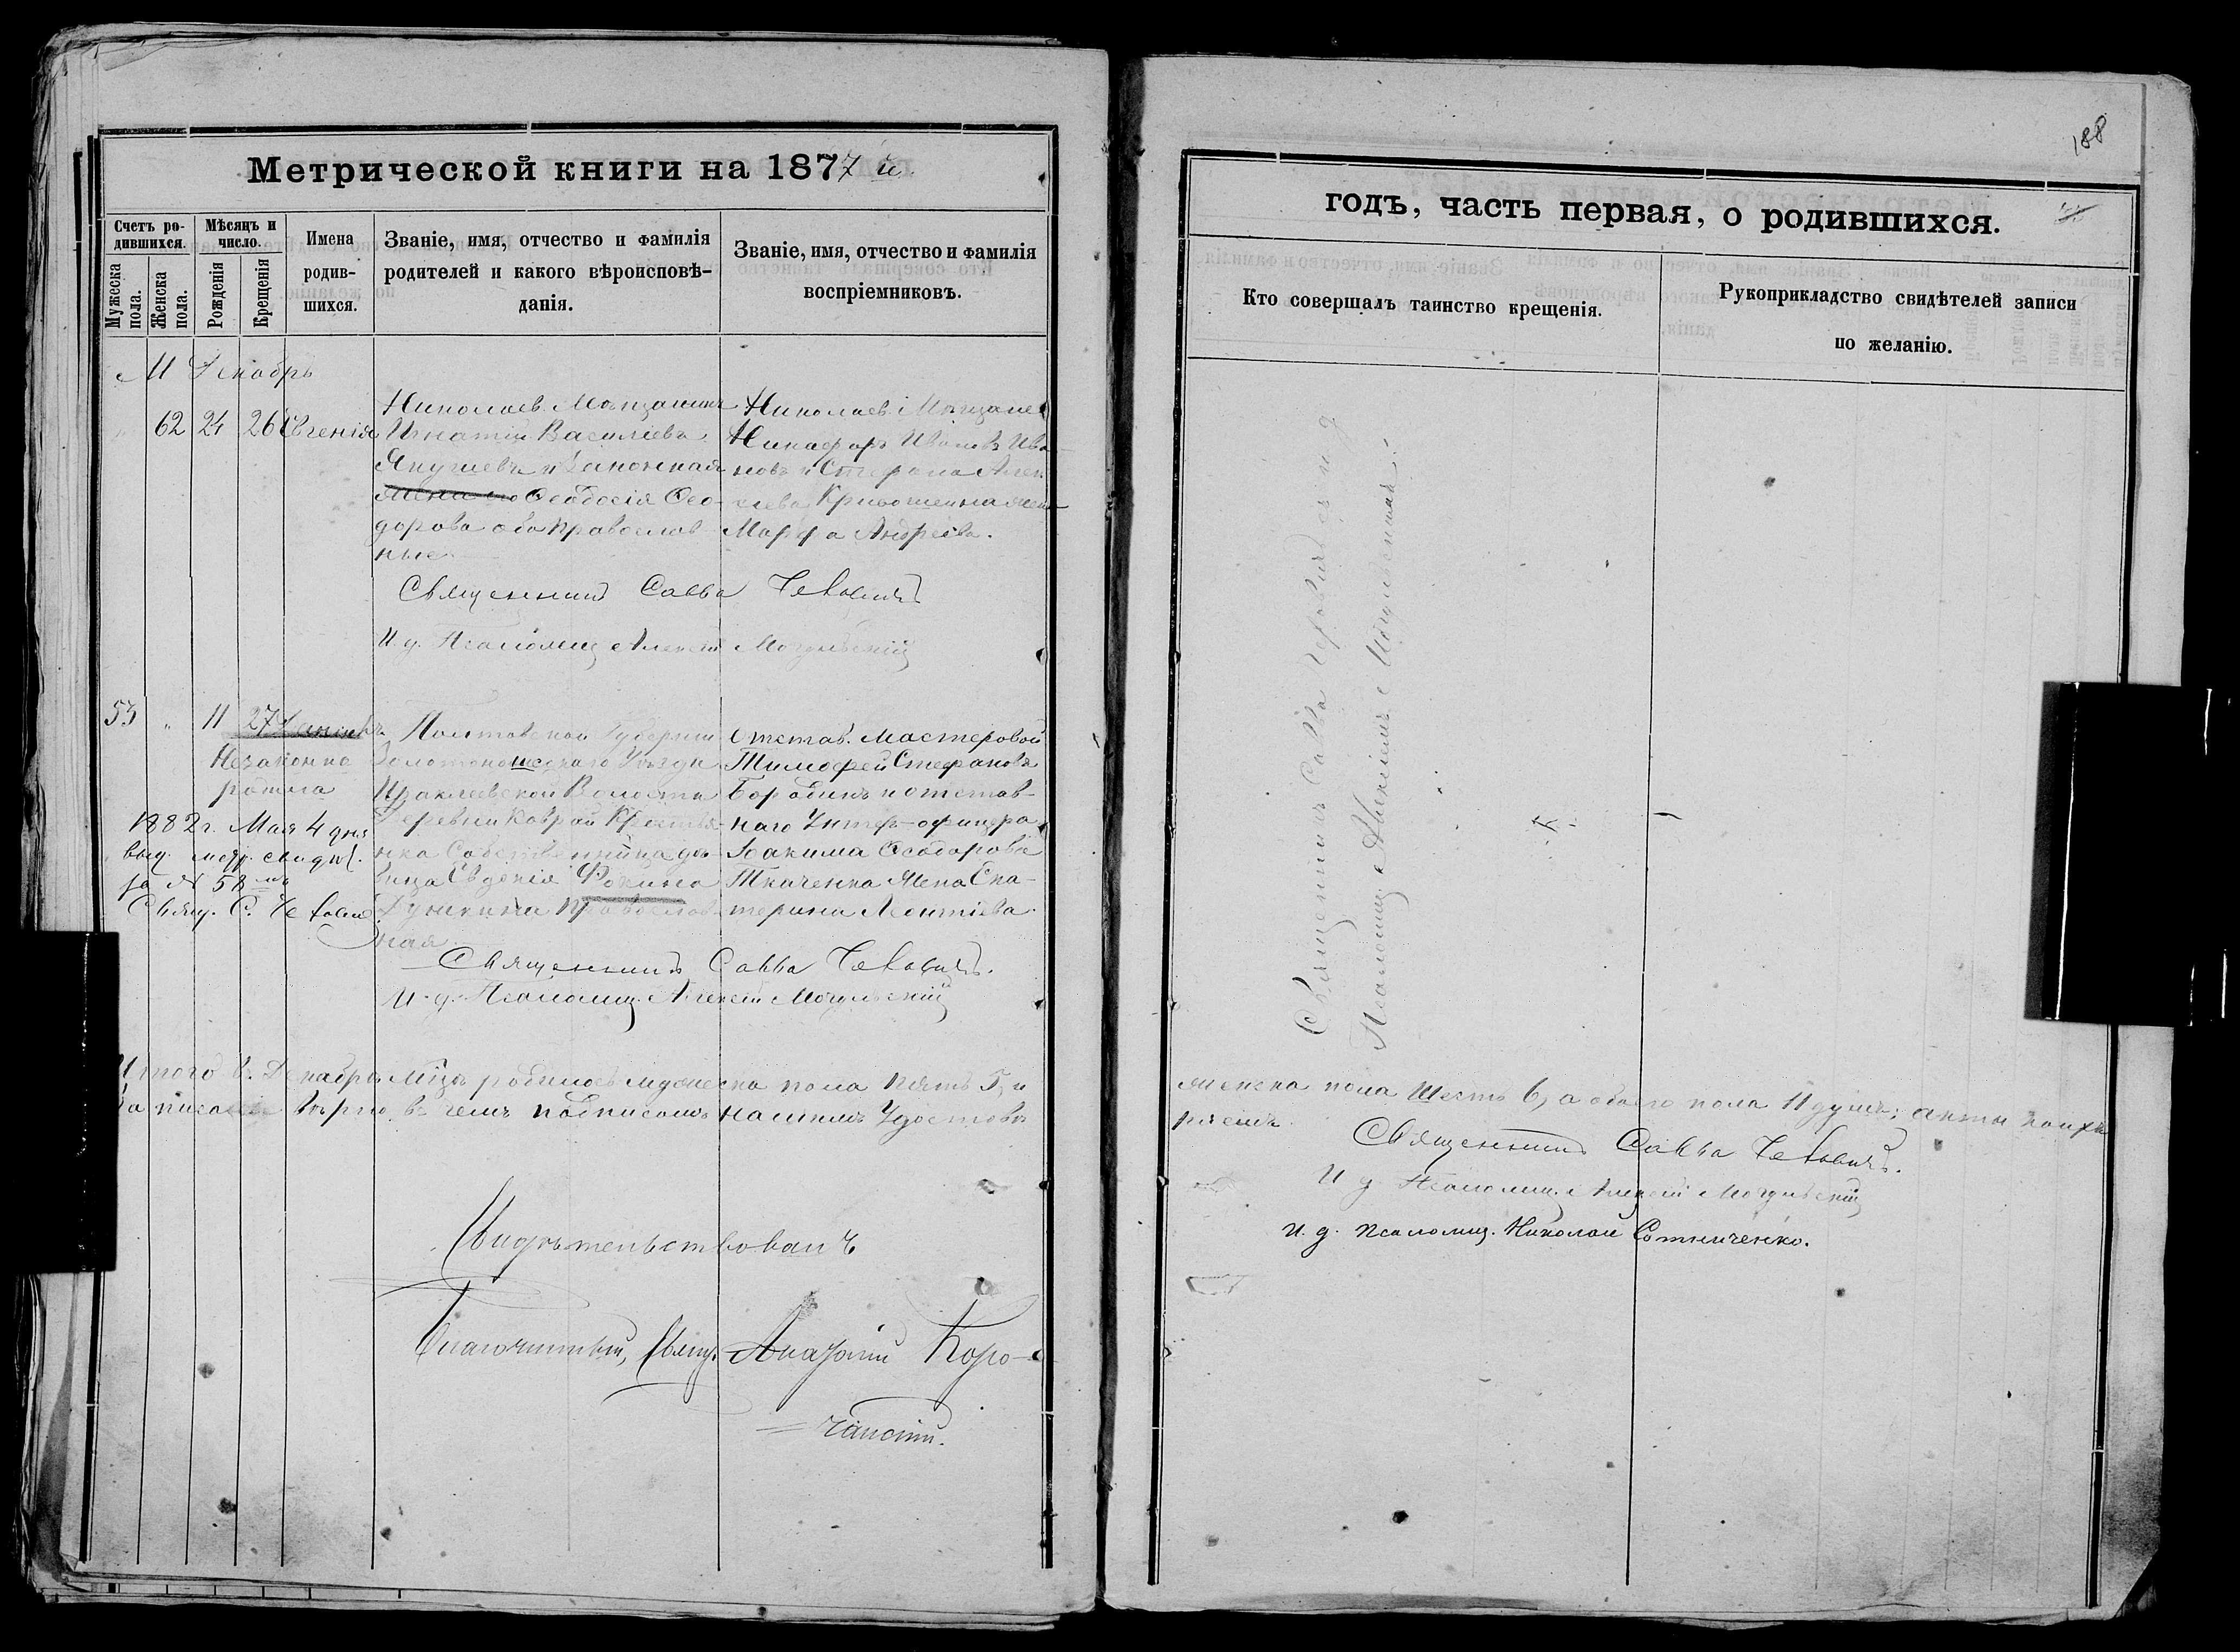 Метрической книги на 1877 й.
Счетъ ро-
дившихся.
Мужеска
пола.
Женска
пола.
Мѣсяцъ и
число.
Рожденія
Крещенія
Имена
родив-
шихся.
Званіе, имя, отчество и фамилія
родителей и какого вѣроисповѣ-
данія.
Званіе, имя, отчество и фамилія
воспріемниковъ.
М Декабрь
62 24 26 Евгенія
Николаев. Мѣщанинъ
Игнатій Василіевъ
и Законная
жена его Ѳеодосія Ѳео-
дорова оба православ-
ные
Николаев. Мѣщане
Никифоръ Ива-
новъ и Стефана Алек-
сѣева жена
Марфа Андреева.
Священникъ Савва
И. д. Псаломщ. Алексій Могульскій
53 " 11 27
Незаконно
1882 г. Мая 4 дня
выд. метр. свидѣт.
за № 58
Свящ. С.
Полтавской Губерніи
Золотоношскаго Уѣзда
Ираклеевской Волости
Деревни Коврай Крестья-
нка Собственница дѣ-
вица Евдокія Фокина
православ-
ная
Отстав. Мастеровой
Тимофей Стефановъ
Бородинъ и отстав-
наго Унтер-офицера
Іоакима Ѳеодорова
Ткаченка Жена Ека-
терина Леонтіева.
Священникъ Савва
И. д. Псаломщ. Алексій Могульскій
Итого в. Декабрѣ мцѣ родилось мужеска пола пять 5, и
записаны вѣрно, въ чемъ подписомъ нашимъ Удостовѣ
Свидѣтельствовалъ
Благочинный, Свящ.
188
годъ, часть первая, о родившихся.
Кто совершалъ таинство крещенія.
Рукоприкладство свидѣтелей записи
по желанію.
Священникъ Савва
Псаломщ. Алексій Могульскій
женска пола Шесть 6, а обоего пола 11 душъ; акты
ряемъ.
Священникъ Савва
И д Псаломщ. Алексій Могульскій
И. д. Псаломщ. Николай Сотниченко.